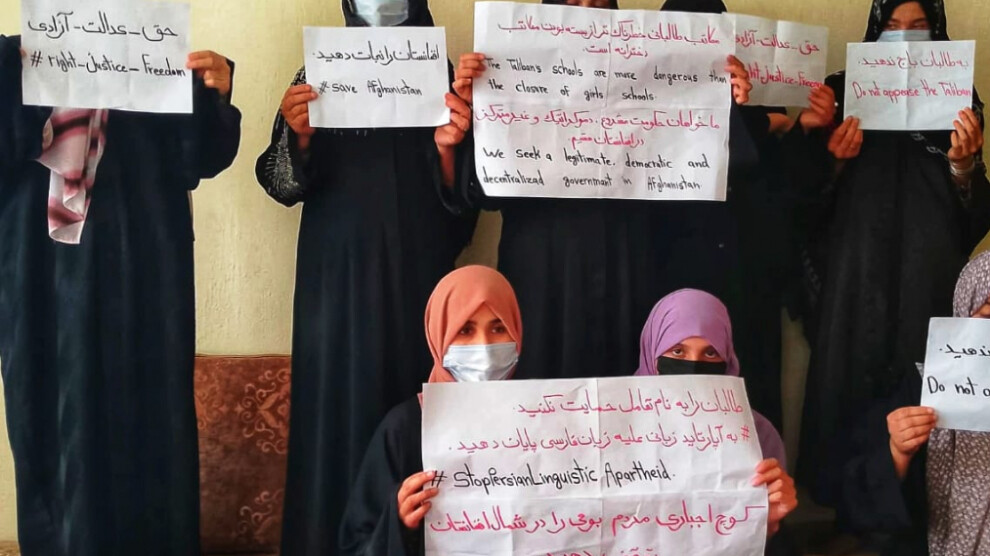 حق - عدالت - آزادی
# right - Justice - Freedom
افغانستان را نجات دهید.
# Save Afghanistan
مکاتب طالبان خطرناک تر از بسته بودن مکاتب
دخترانه است.
The Taliban's schools are more dangerous than
the closure of girls schools.
ما خواهان حکومت مشروع، دموکراتیک و غیر متمرکز
در افغانستان هستیم
We seek a legitimate, democratic and
decentralized government in Afghanistan
حق - عدالت - آزادی
right-Justice-Freedom
به طالبان باج ندهید
Do not appense the Taliban
طالبان را به نام تعامل حمایت نکنید.
# به آپارتاید زبانی علیه زبان فارسی پایان دهید.
# StopPersianLinguistic Apartheid.
کوچ اجباری مردم بومی را در شمال افغانستان
ندهید.
Do not a